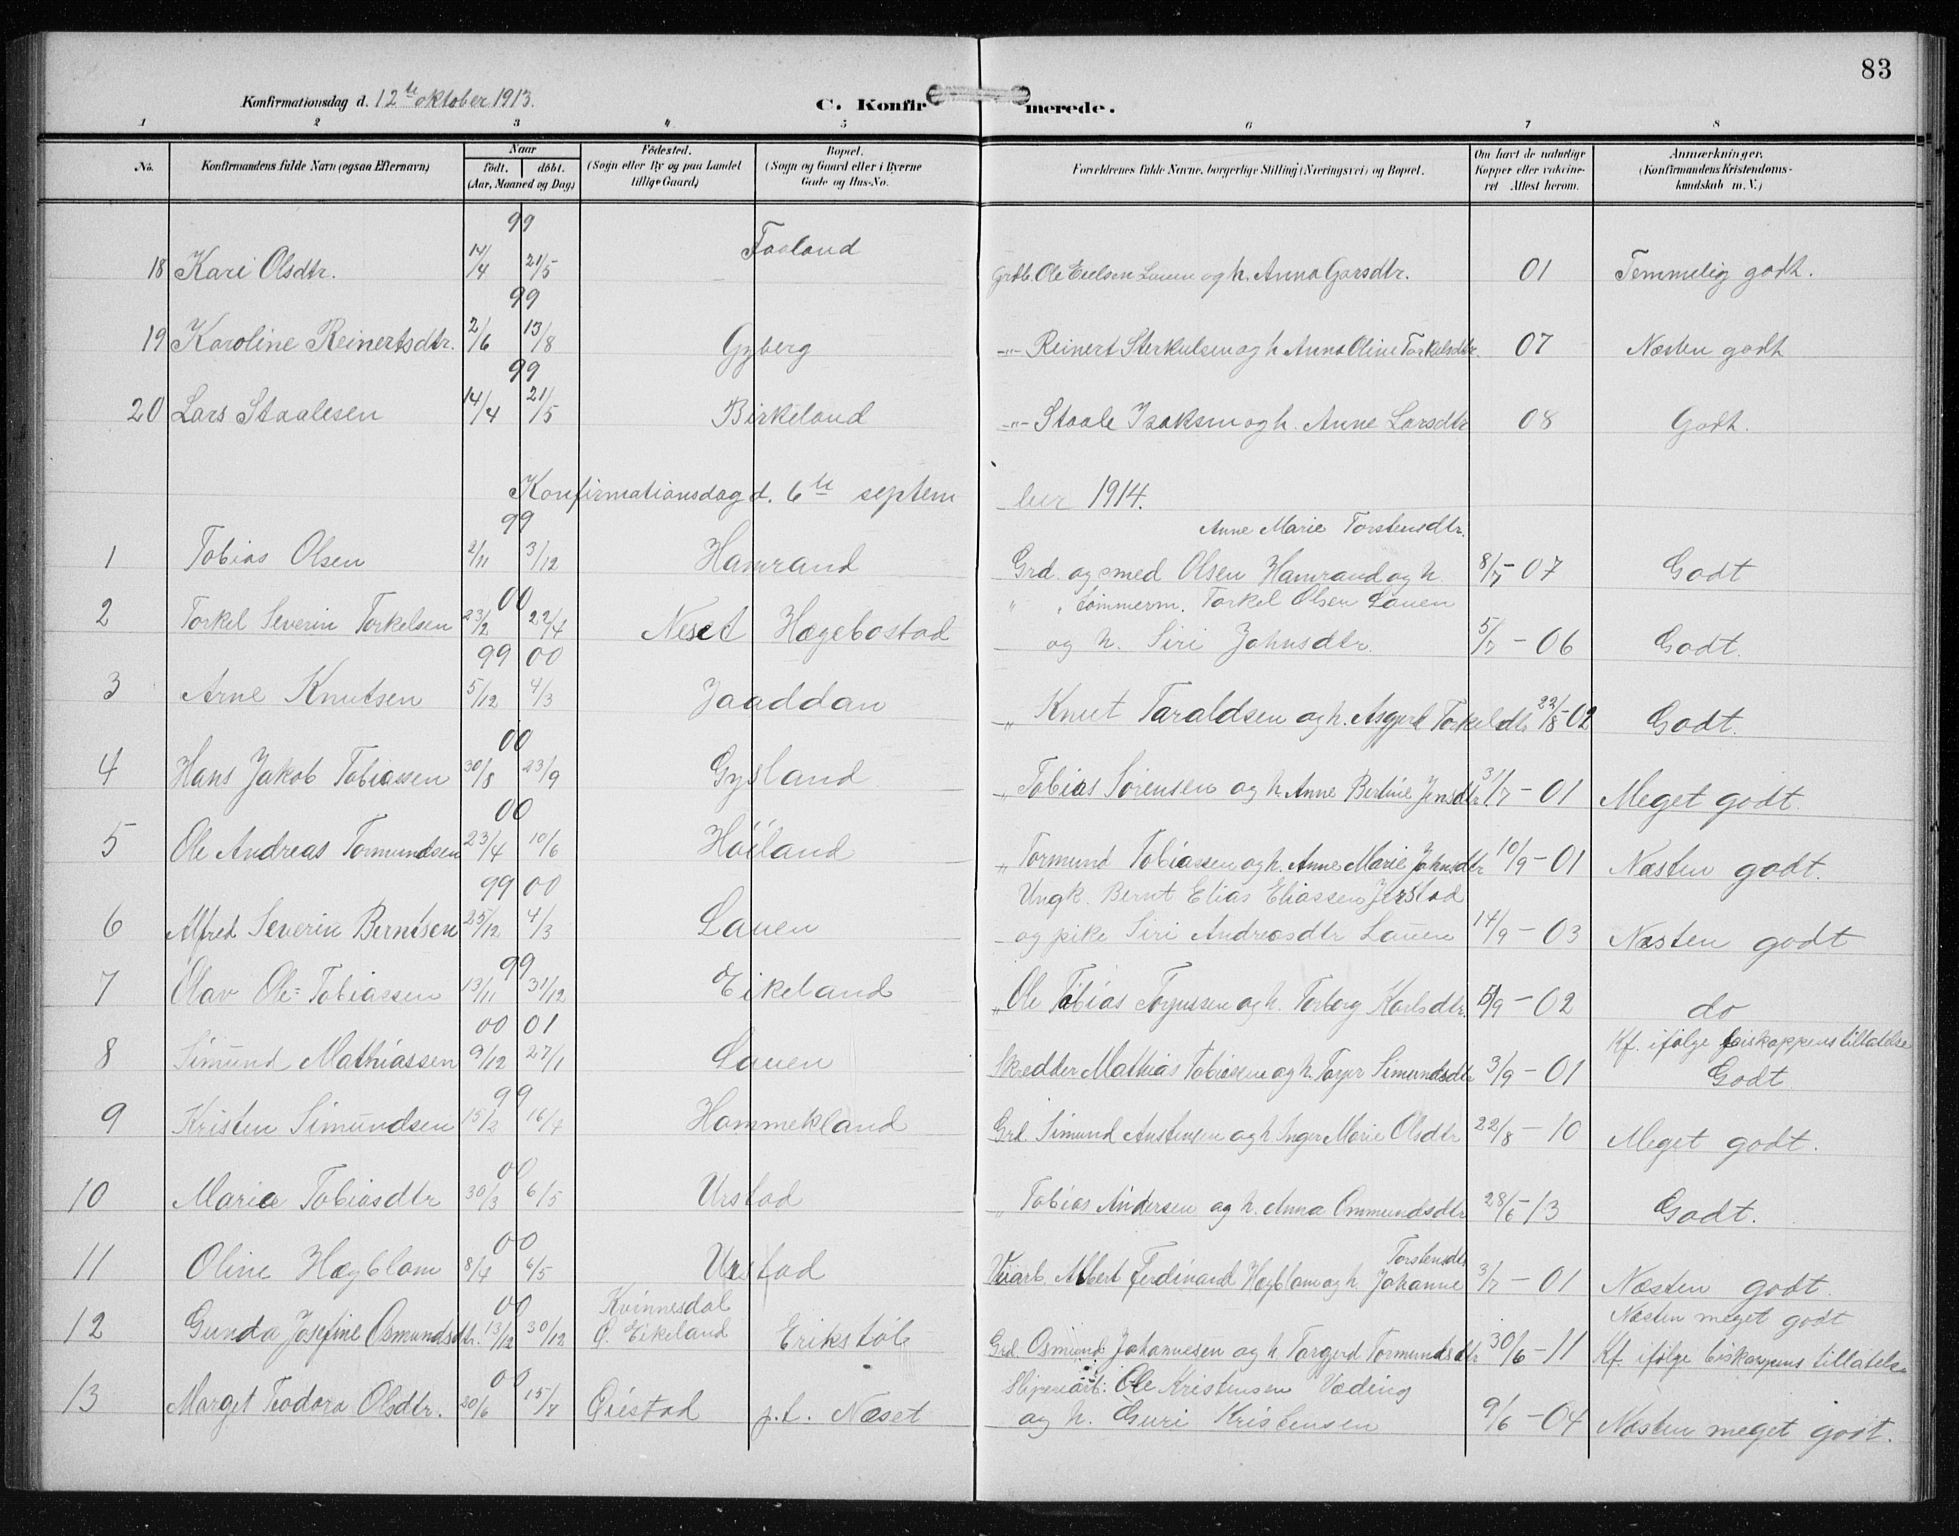 83
Konfirmationsdag d. 12te oktober 1913.
C. Konfirmerede.
1 2 3 4 5 6 7 8
No. Konfirmandens fulde Navn (ogsaa Efternavn) Naar født. døbt. (Aar, Maaned og Dag) Fødested. (Sogn eller By og paa Landet tillige Gaard) Bopæl. (Sogn og Gaard eller i Byerne Gade og Hus-No. Forældrenes fulde Navne, borgerlige Stilling (Næringsvei) og Bopæl. Om havt de naturlige Kopper eller vakcineret Attest herom. Anmærkninger. (Konfirmandens Kristendomskundskab m. V.)
99
18 Kari Olsdtr. 14/4 21/5 Faaland Grdb. Ole Lauen og h. Anna 01 Temmelig godt.
99
19 Karoline Reinertsdtr. 2/6 13/8 Gyberg -"- Reinert og h Anna Oline Torkelsdtr. 07 Næsten godt
99
20 Lars Staalesen 14/4 21/5 Birkeland -"- Staale Isaksen og h. Anne Larsdtr 08 Godt.
Konfirmationsdag d. 6te september 1914.
99 Anne Marie Torstensdtr.
1 Tobias Olsen 2/11 3/12 Hamrand Grd. og smed Olsen Hamrand og h. 8/7-07 Godt
00 " Tømmerm. Torkel Olsen Lauen
2 Torkel Severin Torkelsen 23/2 22/4 Neset Hægebostad og h. Siri Johnsdtr. 5/7-06 Godt.
99 00
3 Arne Knutsen 5/12 4/3 Jaaddan " Knut Taraldsen og h. Asgjerd Torkeldtr 22/8-02 Godt.
00
4 Hans Jakob Tobiassen 30/8 23/9 Gysland " Tobias Sørensen og h. Anne Bertine Jensdtr 31/7-01 Meget godt.
00
5 Ole Andreas Tormundsen 23/4 10/6 Høiland " Tormund Tobiassen og h. Anne Marie Johnsdtr 10/9-01 Næsten godt.
99 00 Ungk. Bernt Elias Eliassen Jerstad
6 Alfred Severin Berntsen 25/12 4/3 Lauen og pike Siri Andreasdtr Lauen 14/9-03 Næsten godt
99
7 Olav Ole Tobiassen 13/11 31/12 Eikeland " Ole Tobias Torjussen og h. Torborg Karlsdtr. /9-02 do
00 01 Kf. ifølge biskoppens tillatelse
8 Simund Mathiassen 9/12 27/1 Lauen Skrædder Mathias Tobiassen og h. Simundsdtr 3/9-01 Godt
99
9 Kristen Simundsen 15/2 16/4 Hammekland Grd. Simund Austensen og h Inger Marie Olsdtr 22/8-10 Meget godt.
00
10 Maria Tobiasdtr 30/3 6/5 Urstad " Tobias Andersen og h. Anna Ommundsdtr 28/6-13 Godt.
00 Torstensdtr
11 Oline Hægblom 8/4 6/5 Urstad Veiarb. Albert Ferdinand Hægblom og h. Johanne 3/7-01 Næsten godt.
00 Kvinnesdal Næsten meget godt
12 Gunda Josefine Osmundsdtr. 13/12 30/12 G. Eikeland Erikstøl Grd. Osmund Johannesen og h Torgjerd Tormundsdtr 30/6-11 Kf. ifølge biskoppens tillatelse
00 Sliperiarb. Ole Kristensen Væding
13 Marget Teodora Olsdtr. 20/6 15/7 Øiestad p.t. Næset og h. Guri Kristensen 9/6-04 Næsten meget godt.